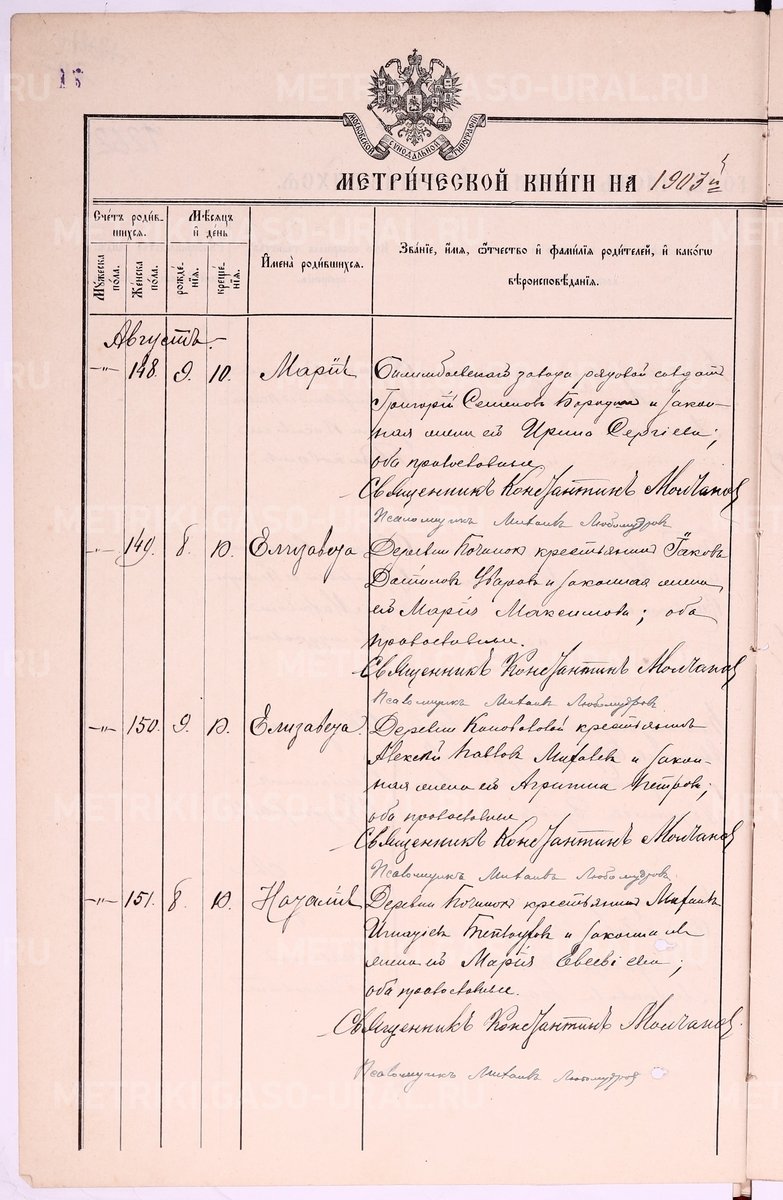 15
МОСКОВСКОЙ СУНОДАЛЬНОЙ ТИПОГРАФІИ
МЕТРИ́ЧЕСКОЙ КНИ́ГИ НА 1903й
Сче́тъ роди́вшихся.
Мѣ́сяцъ и҆ де́нь
И҆мена̀ роди́вшихся.
Зва́нїе, и҆́мя, ѻ҆́тчество и҆ фами́лїя роди́телей, и҆ како́гѡ вѣроисповѣ́данїя.
Мꙋ́жеска по́ла.
Же́нска по́ла.
рожде́нїя.
креще́нїя.
Августъ.
-"- 148. 9. 10. Марія Билимбаевскаго завода рядовой солдатъ
Григорій Семеновъ Бородинъ и закон-
ная жена его Ирина Сергіева;
оба православные
Священникъ Константинъ Молчановъ
Псаломщикъ Михаилъ Любомудровъ
-"- 149. 8. 10. Елизавета Деревни Починок крестьянинъ Іаковъ
Уваровъ и законная жена
его Марія Максимова; оба
православные.
Священникъ Константинъ Молчановъ
Псаломщикъ Михаилъ Любомудровъ
-"- 150. 9. 10. Елизавета. Деревни Коноваловой крестьянинъ
Алексій Павловъ Михалевъ и закон-
ная жена его Агрипина Петрова;
оба православные
Священникъ Константинъ Молчановъ
Псаломщикъ Михаилъ Любомудровъ
-"- 151. 8. 10. Наталія Деревни Починок крестьянинъ Михаилъ
Игнатіевъ и законная
жена его Марія Евсевіева;
оба православные.
Священникъ Константинъ Молчановъ
Псаломщикъ Михаилъ Любомудровъ
METRIKI.GASO-URAL.RU